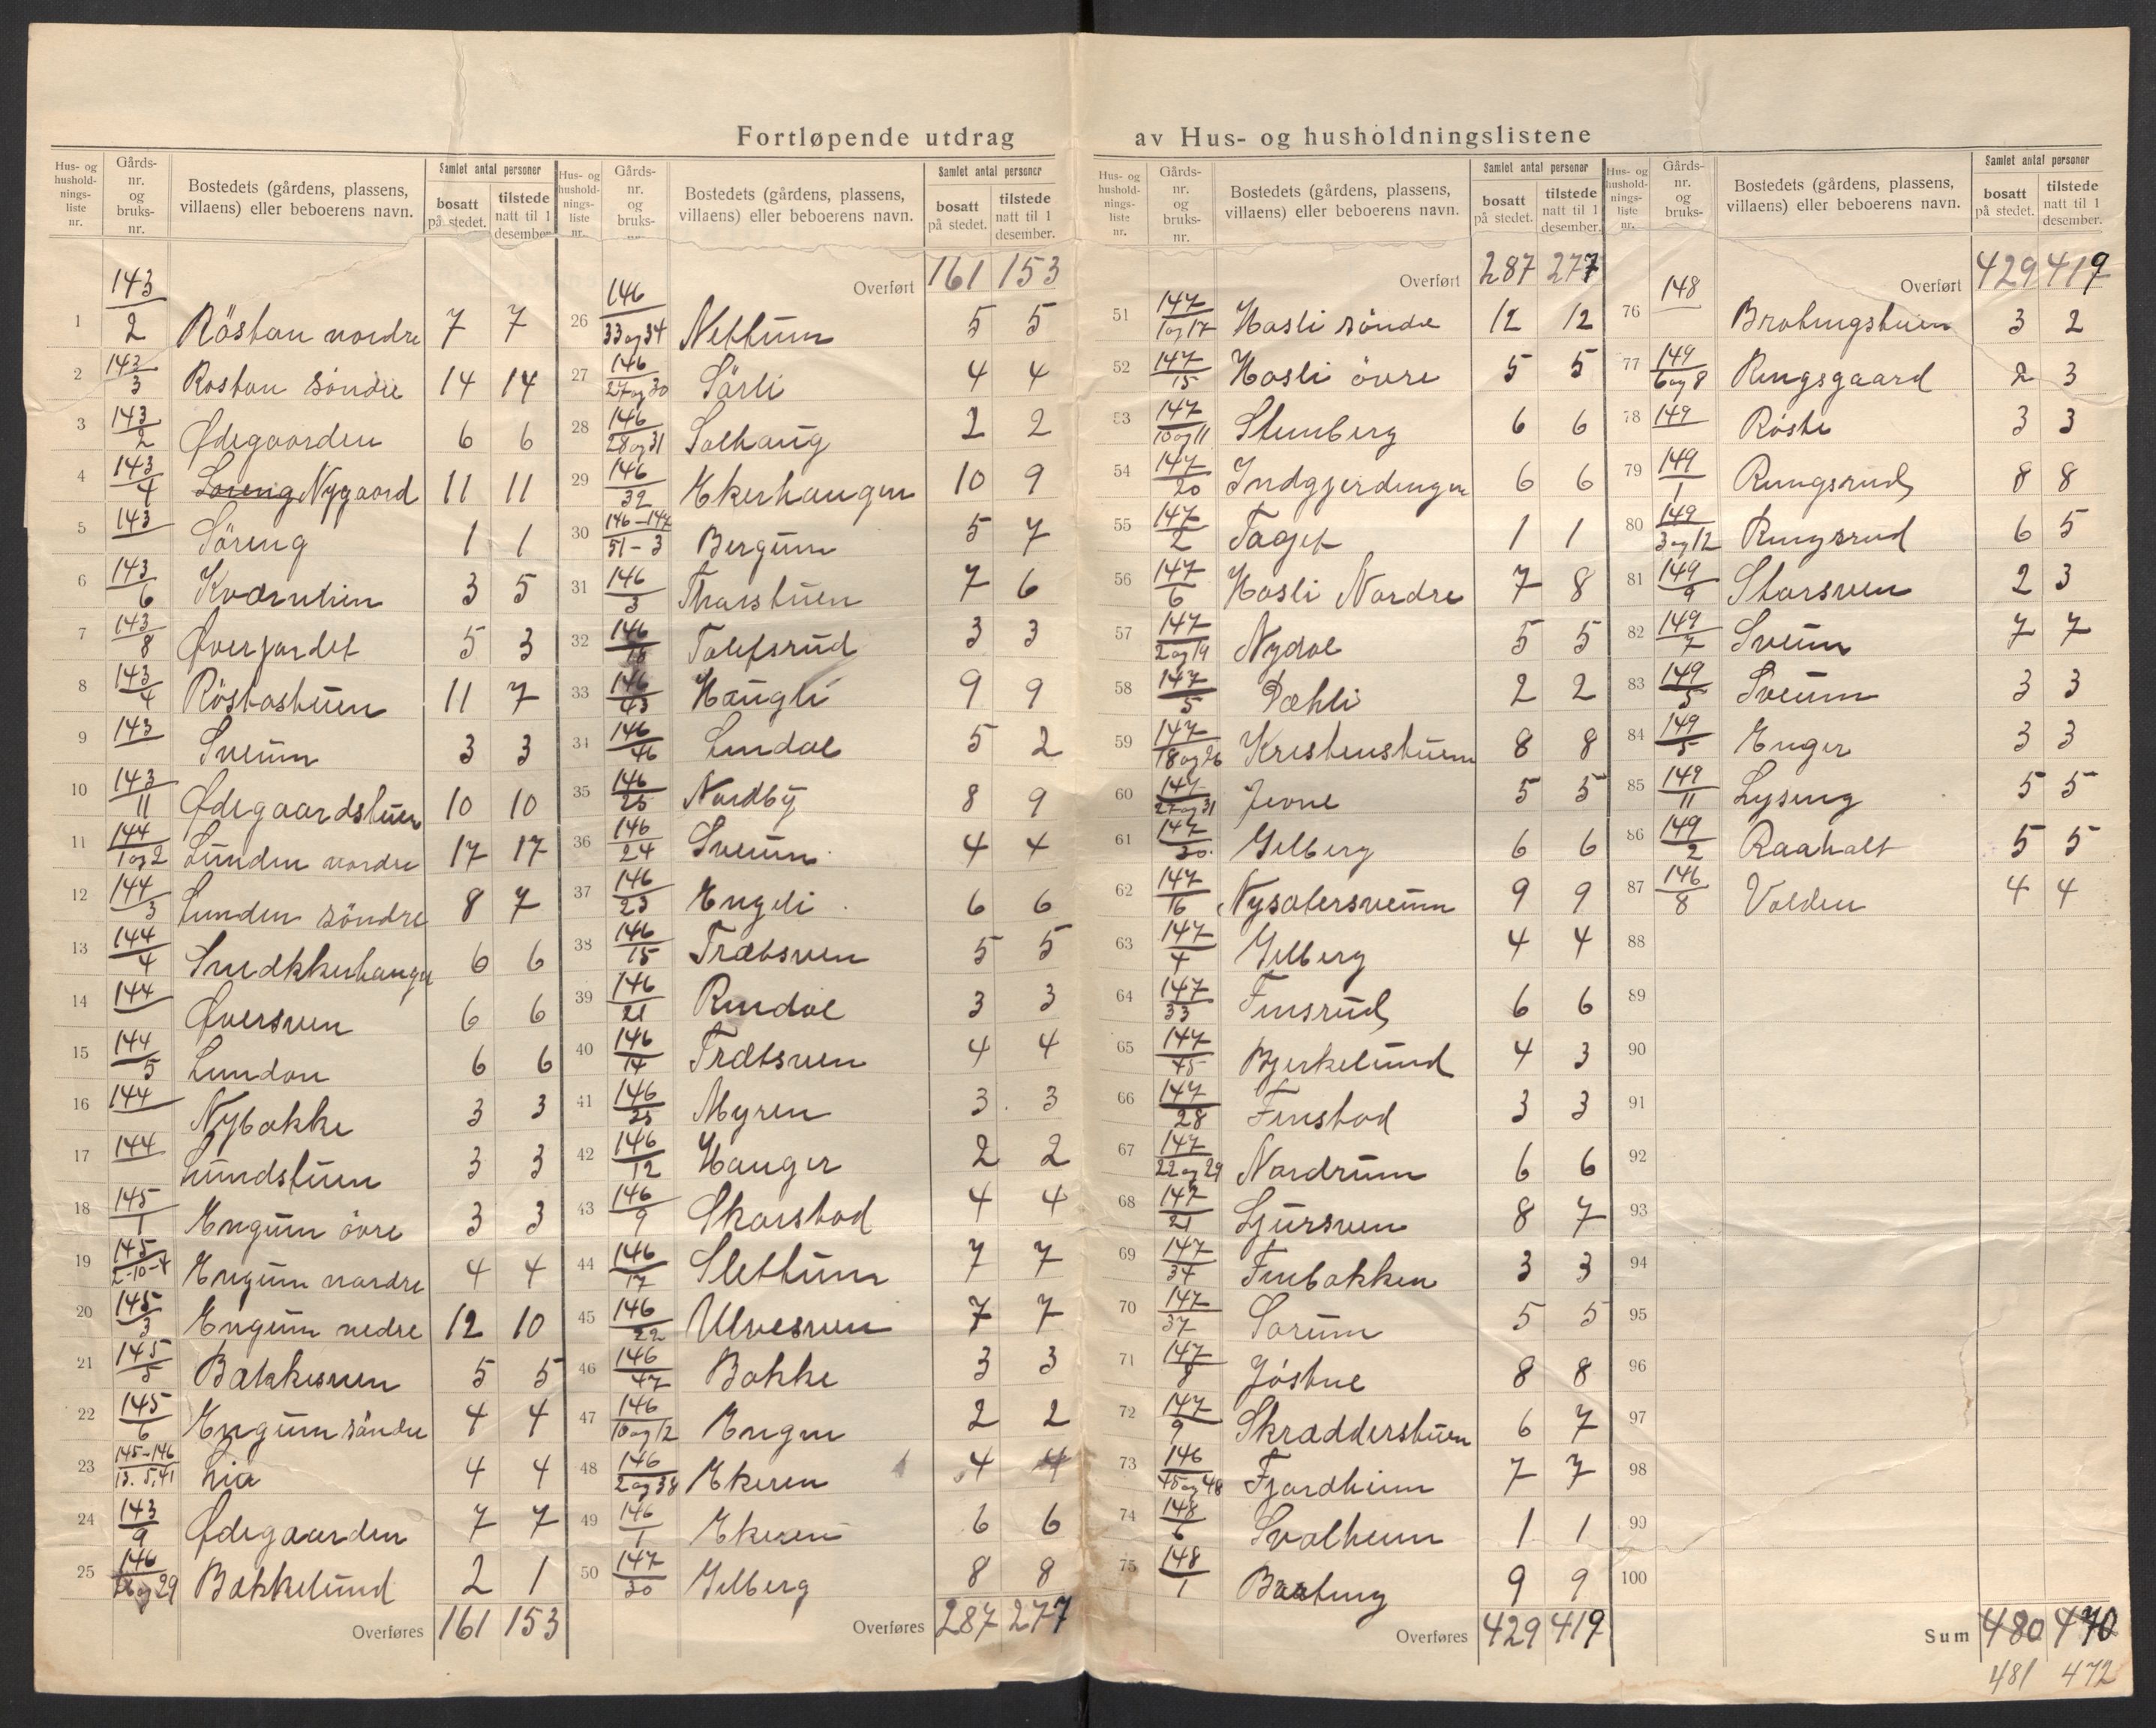 Fortløpende utdrag av Hus- og husholdningslistene
Hus- og hushold- nings- liste nr. Gårds- nr. og bruks- nr. Bostedets (gårdens, plassens, villaens) eller beboerens navn. Samlet antal personer bosatt på stedet. tilstede natt til 1 desember
1 143/2 Röstan nordre 7 7
2 143/3 Rostan söndre 14 14
3 143/2 Ødegaarden 6 6
4 143/4 Loreng Nygaard 11 11
5 143 Söreng 1 1
6 143/6 Kværnlien 3 5
7 143/8 Øverjordet 5 3
8 143/4 Röstastuen 11 7
9 143 Sveum 3 3
10 143/11 Ødegaardstuen 10 10
11 144/1 og 2 Lunden nordre 17 17
12 144/3 Lunden söndre 8 7
13 144/4 6 6
14 144 Øversven 6 6
15 144/5 Lundon 6 6
16 144 Nybakke 3 3
17 144 Lundstuen 3 3
18 145/1 Engum övre 3 3
19 145/2-10-4 Engum nordre 4 4
20 145/3 Engum nedre 12 10
21 145/5 Bakkesven 5 5
22 145/6 Engum söndre 4 4
23 145-146/13. 5,41 Lia 4 4
24 143/9 Ødegaarden 7 7
25 146/ og 29 Bakkelund 2 1
Overføres 161 153
Hus- og hushold- nings- liste nr. Gårds- nr. og bruks- nr. Bostedets (gårdens, plassens, villaens) eller beboerens navn. Samlet antal personer bosatt på stedet. tilstede natt til 1 desember.
Overført 161 153
26 146/33 og 34 Nettum 5 5
27 146/27 og 30 Sörli 4 4
28 146/28 og 31 Solhaug 2 2
29 146/32 Ekerhaugen 10 9
30 146-147/51-3 Bergum 5 7
31 146/3 Thorstuen 7 6
32 146/18 Tolefsrud 3 3
33 146/43 Haugli 9 9
34 146/46 Lindal 5 2
35 146/25 Nordby 8 9
36 146/24 Sveum 4 4
37 146/23 Engeli 6 6
38 146/15 Trætsven 5 5
39 146/21 Rindal 3 3
40 146/14 Trætsven 4 4
41 146/25 Myren 3 3
42 146/12 Hauger 2 2
43 146/9 Skarstad 4 4
44 146/17 Slettum 7 7
45 146/22 Ulvesven 7 7
46 146/47 Bakke 3 3
47 146/10 og 12 Engen 2 2
48 146/2 og 38 Ekeren 4 4
49 146/1 Ekeren 6 6
50 147/30 Gilberg 8 8
Overføres 287 277
Hus- og hushold- nings- liste nr. Gårds- nr. og bruks- nr. Bostedets (gårdens, plassens, villaens) eller beboerens navn. Samlet antal personer bosatt på stedet. tilstede natt til 1 desember.
Overført 287 277
51 147/1 og 17 Hasli söndre 12 12
52 147/15 Hasli övre 5 5
53 147/10 og 11 Stenberg 6 6
54 147/20 Indgjerdingen 6 6
55 147/2 Taget 1 1
56 147/6 Hasli Nordre 7 8
57 147/2 og 19 Nydal 5 5
58 147/5 Dæhli 2 2
59 147/18 og 26 Kristenstuen 8 8
60 147/27 og 31 Jevne 5 5
61 147/30 Gilberg 6 6
62 147/16 Nysætersveum 9 9
63 147/4 Gilberg 4 4
64 147/33 Finsrud 6 6
65 147/45 Bjerkelund 4 3
66 147/28 Finstad 3 3
67 147/22 og 29 Nordrum 6 6
68 147/21 Sjursven 8 7
69 147/34 Finbakken 3 3
70 147/37 Sorum 5 5
71 147/8 Jöstne 8 8
72 147/9 Skrædderstuen 6 7
73 146/45 og 48 Fjordheim 7 7
74 148/6 Svalheim 1 1
75 148/1 9 9
Overføres 429 419
Hus- og hushold- nings- liste nr. Gårds- nr. og bruks- Bostedets (gårdens, plassens, villaens) eller beboerens navn. Samlet antal personer bosatt på stedet. tilstede natt til 1 desember.
Overført 429 419
76 148 Brotingstuen 3 2
77 149/6 og 8 Ringsgaard 2 3
78 149 Röste 3 3
79 149/1 Ringsrud 8 8
80 149/3 og 12 Ringsrud 6 5
81 149/9 Storsven 2 3
82 149/7 Sveum 7 7
83 149/5 Sveum 3 3
84 149/5 Enger 3 3
85 149/11 Lyseng 5 5
86 149/2 Raaholt 5 5
87 146/8 Volden 4 4
88
89
90
91
92
93
94
95
96
97
98
99
100
Sum 480 470
481 472